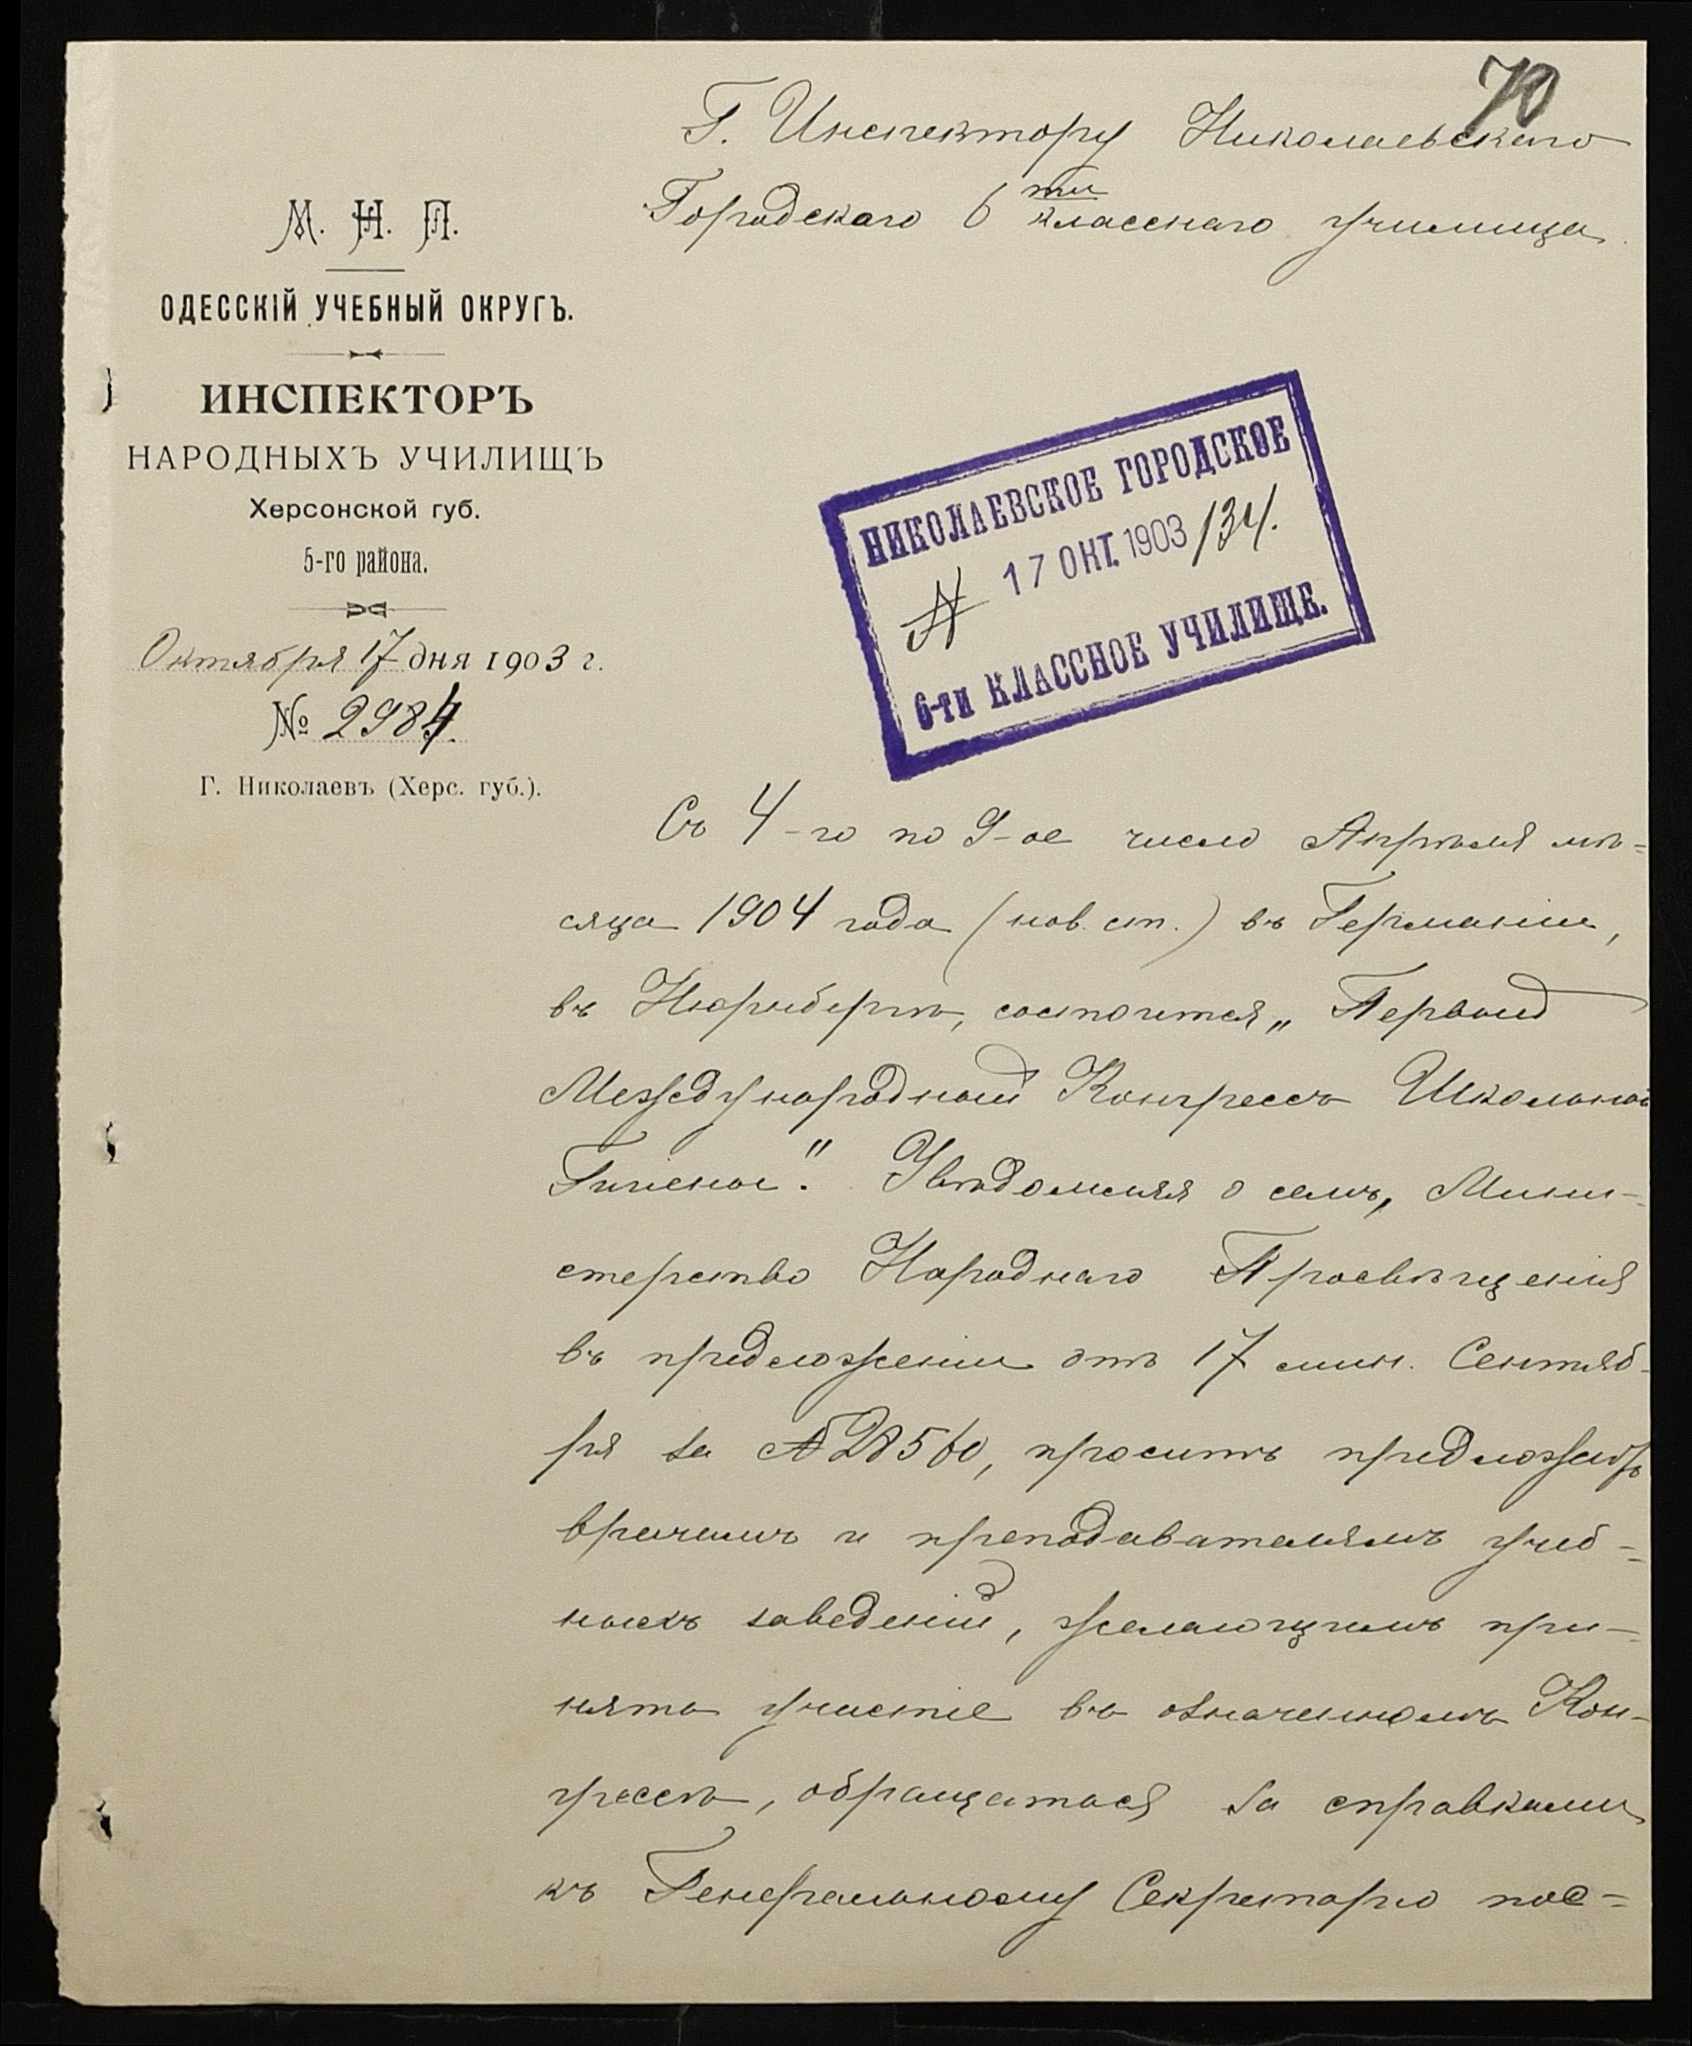 70
Г. Инспектору Николаевскаго
Городскаго 6ти класснаго училища.
М. Н. П.
ОДЕССКІЙ УЧЕБНЫЙ ОКРУГЪ.
ИНСПЕКТОРЪ
НАРОДНЫХЪ УЧИЛИЩЪ
Херсонской губ.
5-го района.
Октября 17 дня 1903 г.
№ 2984.
Г. Николаевъ (Херс. губ.).
НИКОЛАЕВСКОЕ ГОРОДСКОЕ
№ 17 ОКТ. 1903 134.
6-ти КЛАССНОЕ УЧИЛИЩЕ.
Съ 4-го по 9-ое число Апрѣля мѣ=
сяца 1904 года (нов. ст.) въ Германіи,
въ Нюрнбергѣ, состоится „Первый
Международный Конгрессъ Школьной
Гигіены". Увѣдомляя о семъ, Мини-
стерство Народнаго Просвѣщенія
въ предложеніи отъ 17 мин. Сентяб-
ря за № 28560, проситъ предложить
врачамъ и преподавателямъ учеб=
ныхъ заведеній, желающимъ при-
нять участіе въ означенномъ Кон-
грессѣ, обращаться за справками
къ Генеральному Секретарю пос=